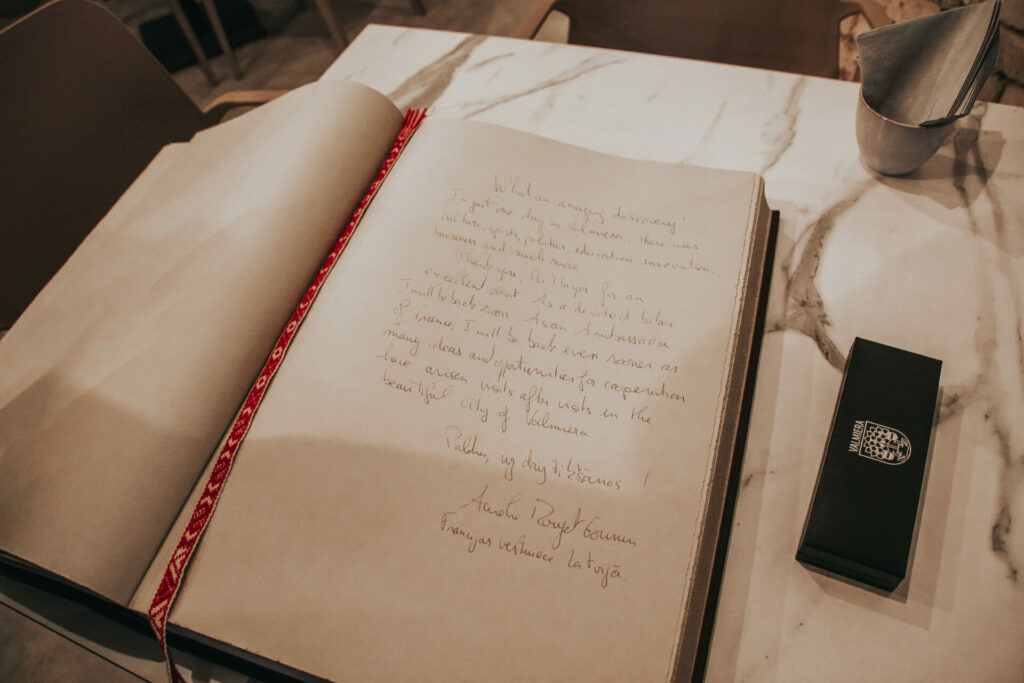 What an amazing discovery!
In just one day in Valmiera, there was
culture, sports, politics, education, innovation,
business and much more
Thank you, Mr Mayor, for an
excellent visit. As a devoted
I will be back soon. As an Ambassador
of France, I will be back even sooner as
many ideas and opportunities for cooperation
have arisen visits after visits in the
beautiful city of Valmiera
Paldies, uz drīz tikšanos !
Francijas vēstniece Latvijā
VALMIERA